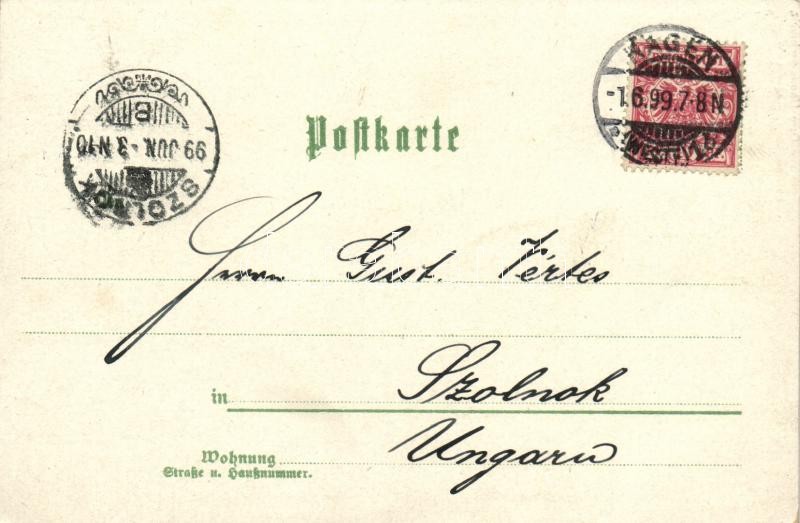 HAGEN
-1.6.99.7-8N
(WESTF.)
Postkarte
SZOLNOK
99 JUN.-3.N10
B
Herrn Gust. Vértes
in Szolnok
Ungarn
Wohnung
Straße u. Hausnummer.